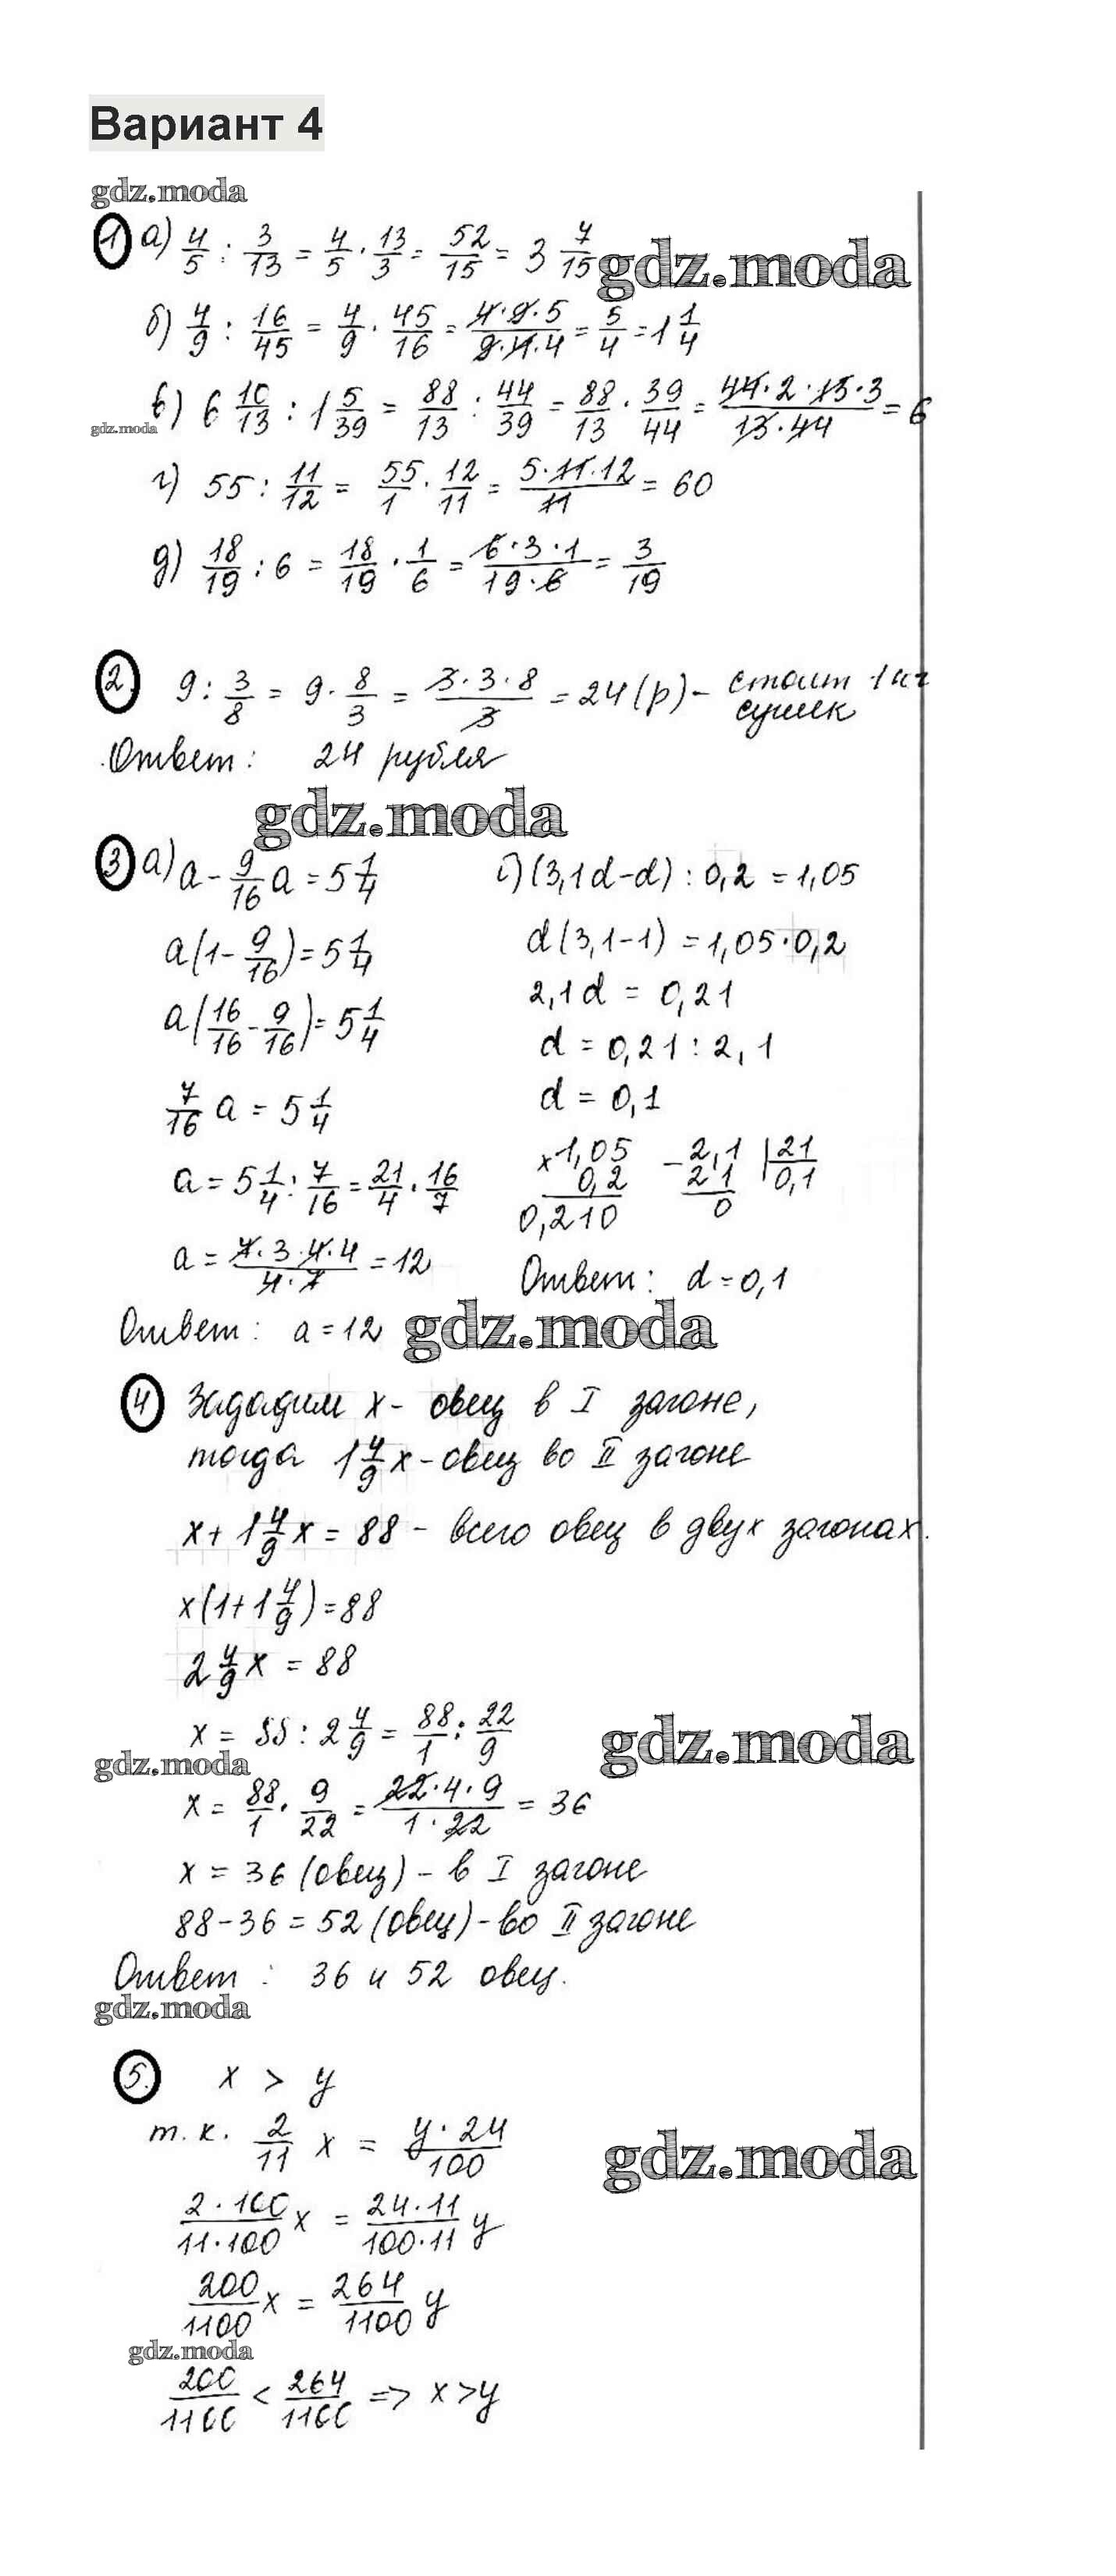 Вариант 4
gdz.moda
1 а) 4/5 : 3/13 = 4/5 · 13/3 = 52/15 = 3 7/15
gdz.moda
б) 4/9 : 16/45 = 4/9 · 45/16 = 4·9·5/9·4·4 = 5/4 = 1 1/4
в) 6 10/13 : 1 5/39 = 88/13 : 44/39 = 88/13 · 39/44 = 44·2·13·3/13·44 = 6
gdz.moda
г) 55 : 11/12 = 55/1 · 12/11 = 5·11·12/11 = 60
д) 18/19 : 6 = 18/19 · 1/6 = 6·3·1/19·6 = 3/19
2 9 : 3/8 = 9 · 8/3 = 3·3·8/3 = 24 (р) - стоит 1 кг
сушек
Ответ: 24 рубля
gdz.moda
3 а) a - 9/16 a = 5 1/4
a(1 - 9/16) = 5 1/4
a(16/16 - 9/16) = 5 1/4
7/16 a = 5 1/4
a = 5 1/4 : 7/16 = 21/4 · 16/7
a = 7·3·4·4/4·7 = 12
Ответ: a = 12
б) (3,1d-d) : 0,2 = 1,05
d(3,1-1) = 1,05·0,2
2,1d = 0,21
d = 0,21 : 2,1
d = 0,1
×1,05 -2,1 |21
0,2 21 0,1
0,210 0
Ответ: d = 0,1
gdz.moda
4 Зададим x - овец в I загоне,
тогда 1 4/9 x - овец во II загоне
x + 1 4/9 x = 88 - всего овец в двух загонах.
x(1 + 1 4/9) = 88
2 4/9 x = 88
x = 88 : 2 4/9 = 88/1 : 22/9
gdz.moda
gdz.moda
x = 88/1 · 9/22 = 22·4·9/1·22 = 36
x = 36 (овец) - в I загоне
88 - 36 = 52 (овец) - во II загоне
Ответ: 36 и 52 овец.
gdz.moda
5. x > y
т.к. 2/11 x = y·24/100
gdz.moda
2·100/11·100 x = 24·11/100·11 y
200/1100 x = 264/1100 y
gdz.moda
200/1100 < 264/1100 => x > y